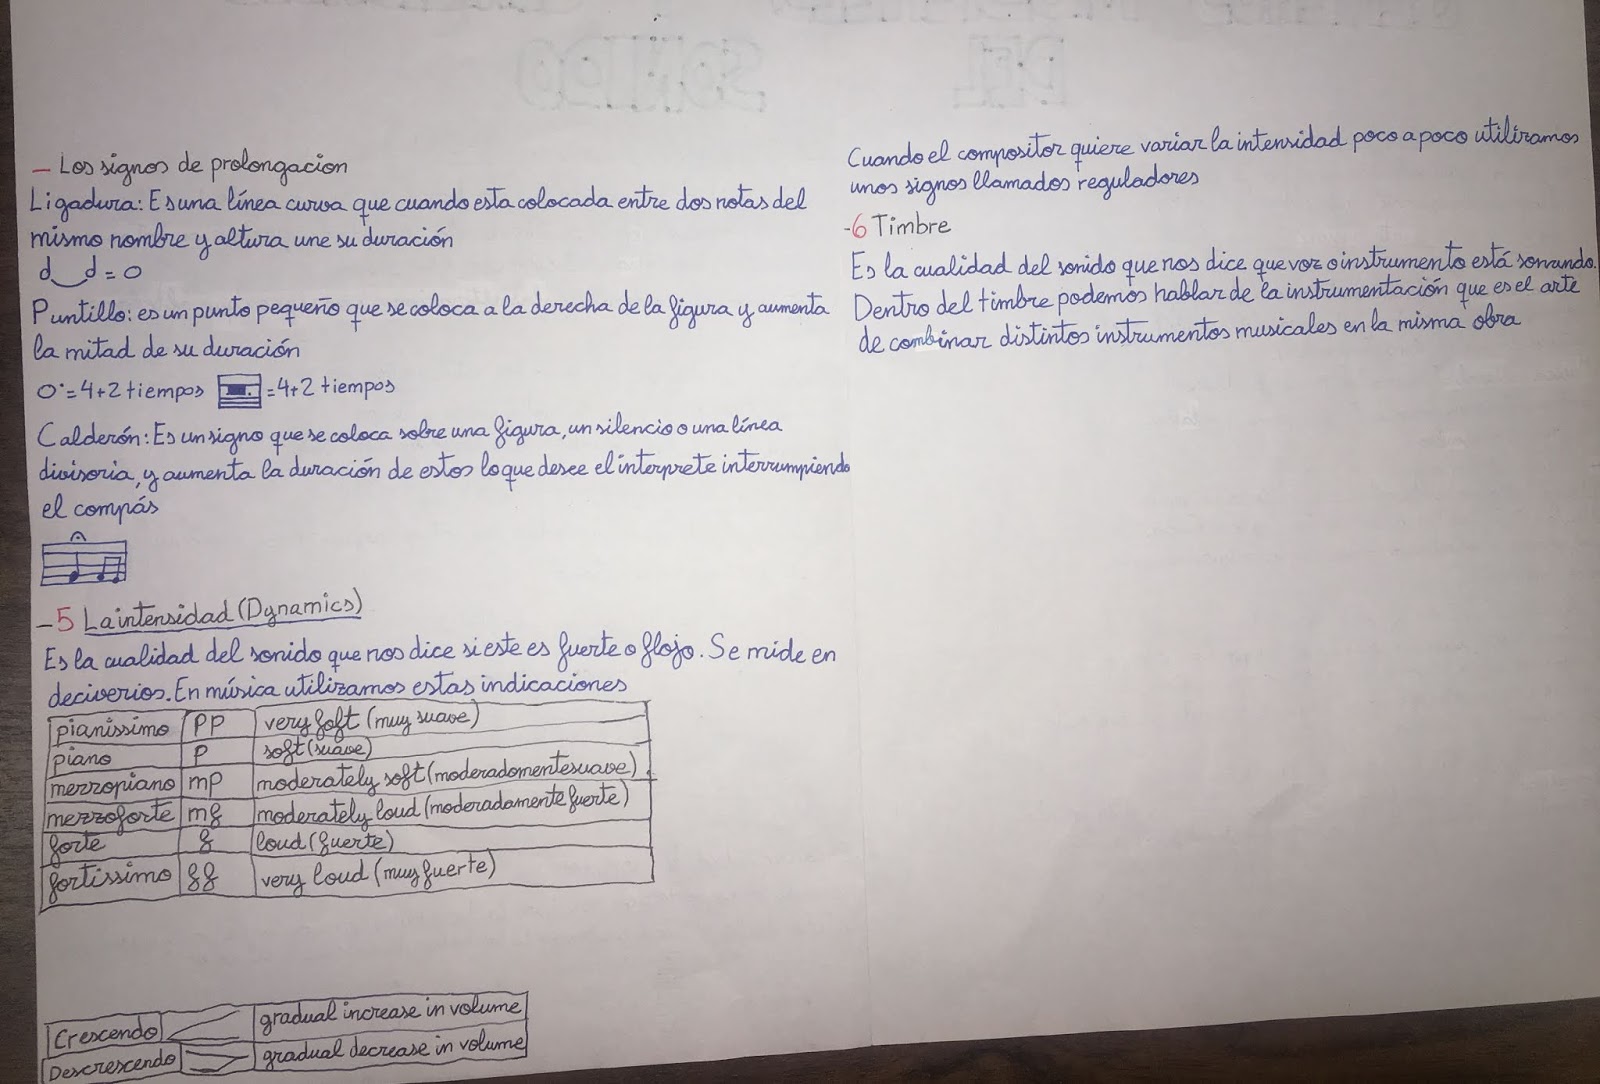 - Los signos de prolongacion
Ligadura: Es una línea curva que cuando esta colocada entre dos notas del
mismo nombre y altura une su duración
d d = o
Puntillo: es un punto pequeño que se coloca a la derecha de la figura y aumenta
la mitad de su duración
o· = 4+2 tiempos = 4+2 tiempos
Calderón: Es un signo que se coloca sobre una figura, un silencio o una línea
divisoria, y aumenta la duración de estos lo que desee el interprete interrumpiendo
el compás
- 5 La intensidad (Dynamics)
Es la cualidad del sonido que nos dice si este es fuerte o flojo. Se mide en
deciverios. En música utilizamos estas indicaciones
pianissimo PP very soft (muy suave)
piano P soft (suave)
mezzopiano mp moderately soft (moderadomente suave)
mezzoforte mf moderately loud (moderadamente fuerte)
forte f loud (fuerte)
fortissimo ff very loud (muy fuerte)
Crescendo < gradual increase in volume
Descrescendo > gradual decrease in volume
Cuando el compositor quiere variar la intensidad poco a poco utilizamos
unos signos llamados reguladores
-6 Timbre
Es la cualidad del sonido que nos dice que voz o instrumento está sonando.
Dentro del timbre podemos hablar de la instrumentación que es el arte
de combinar distintos instrumentos musicales en la misma obra
DEL SONIDO